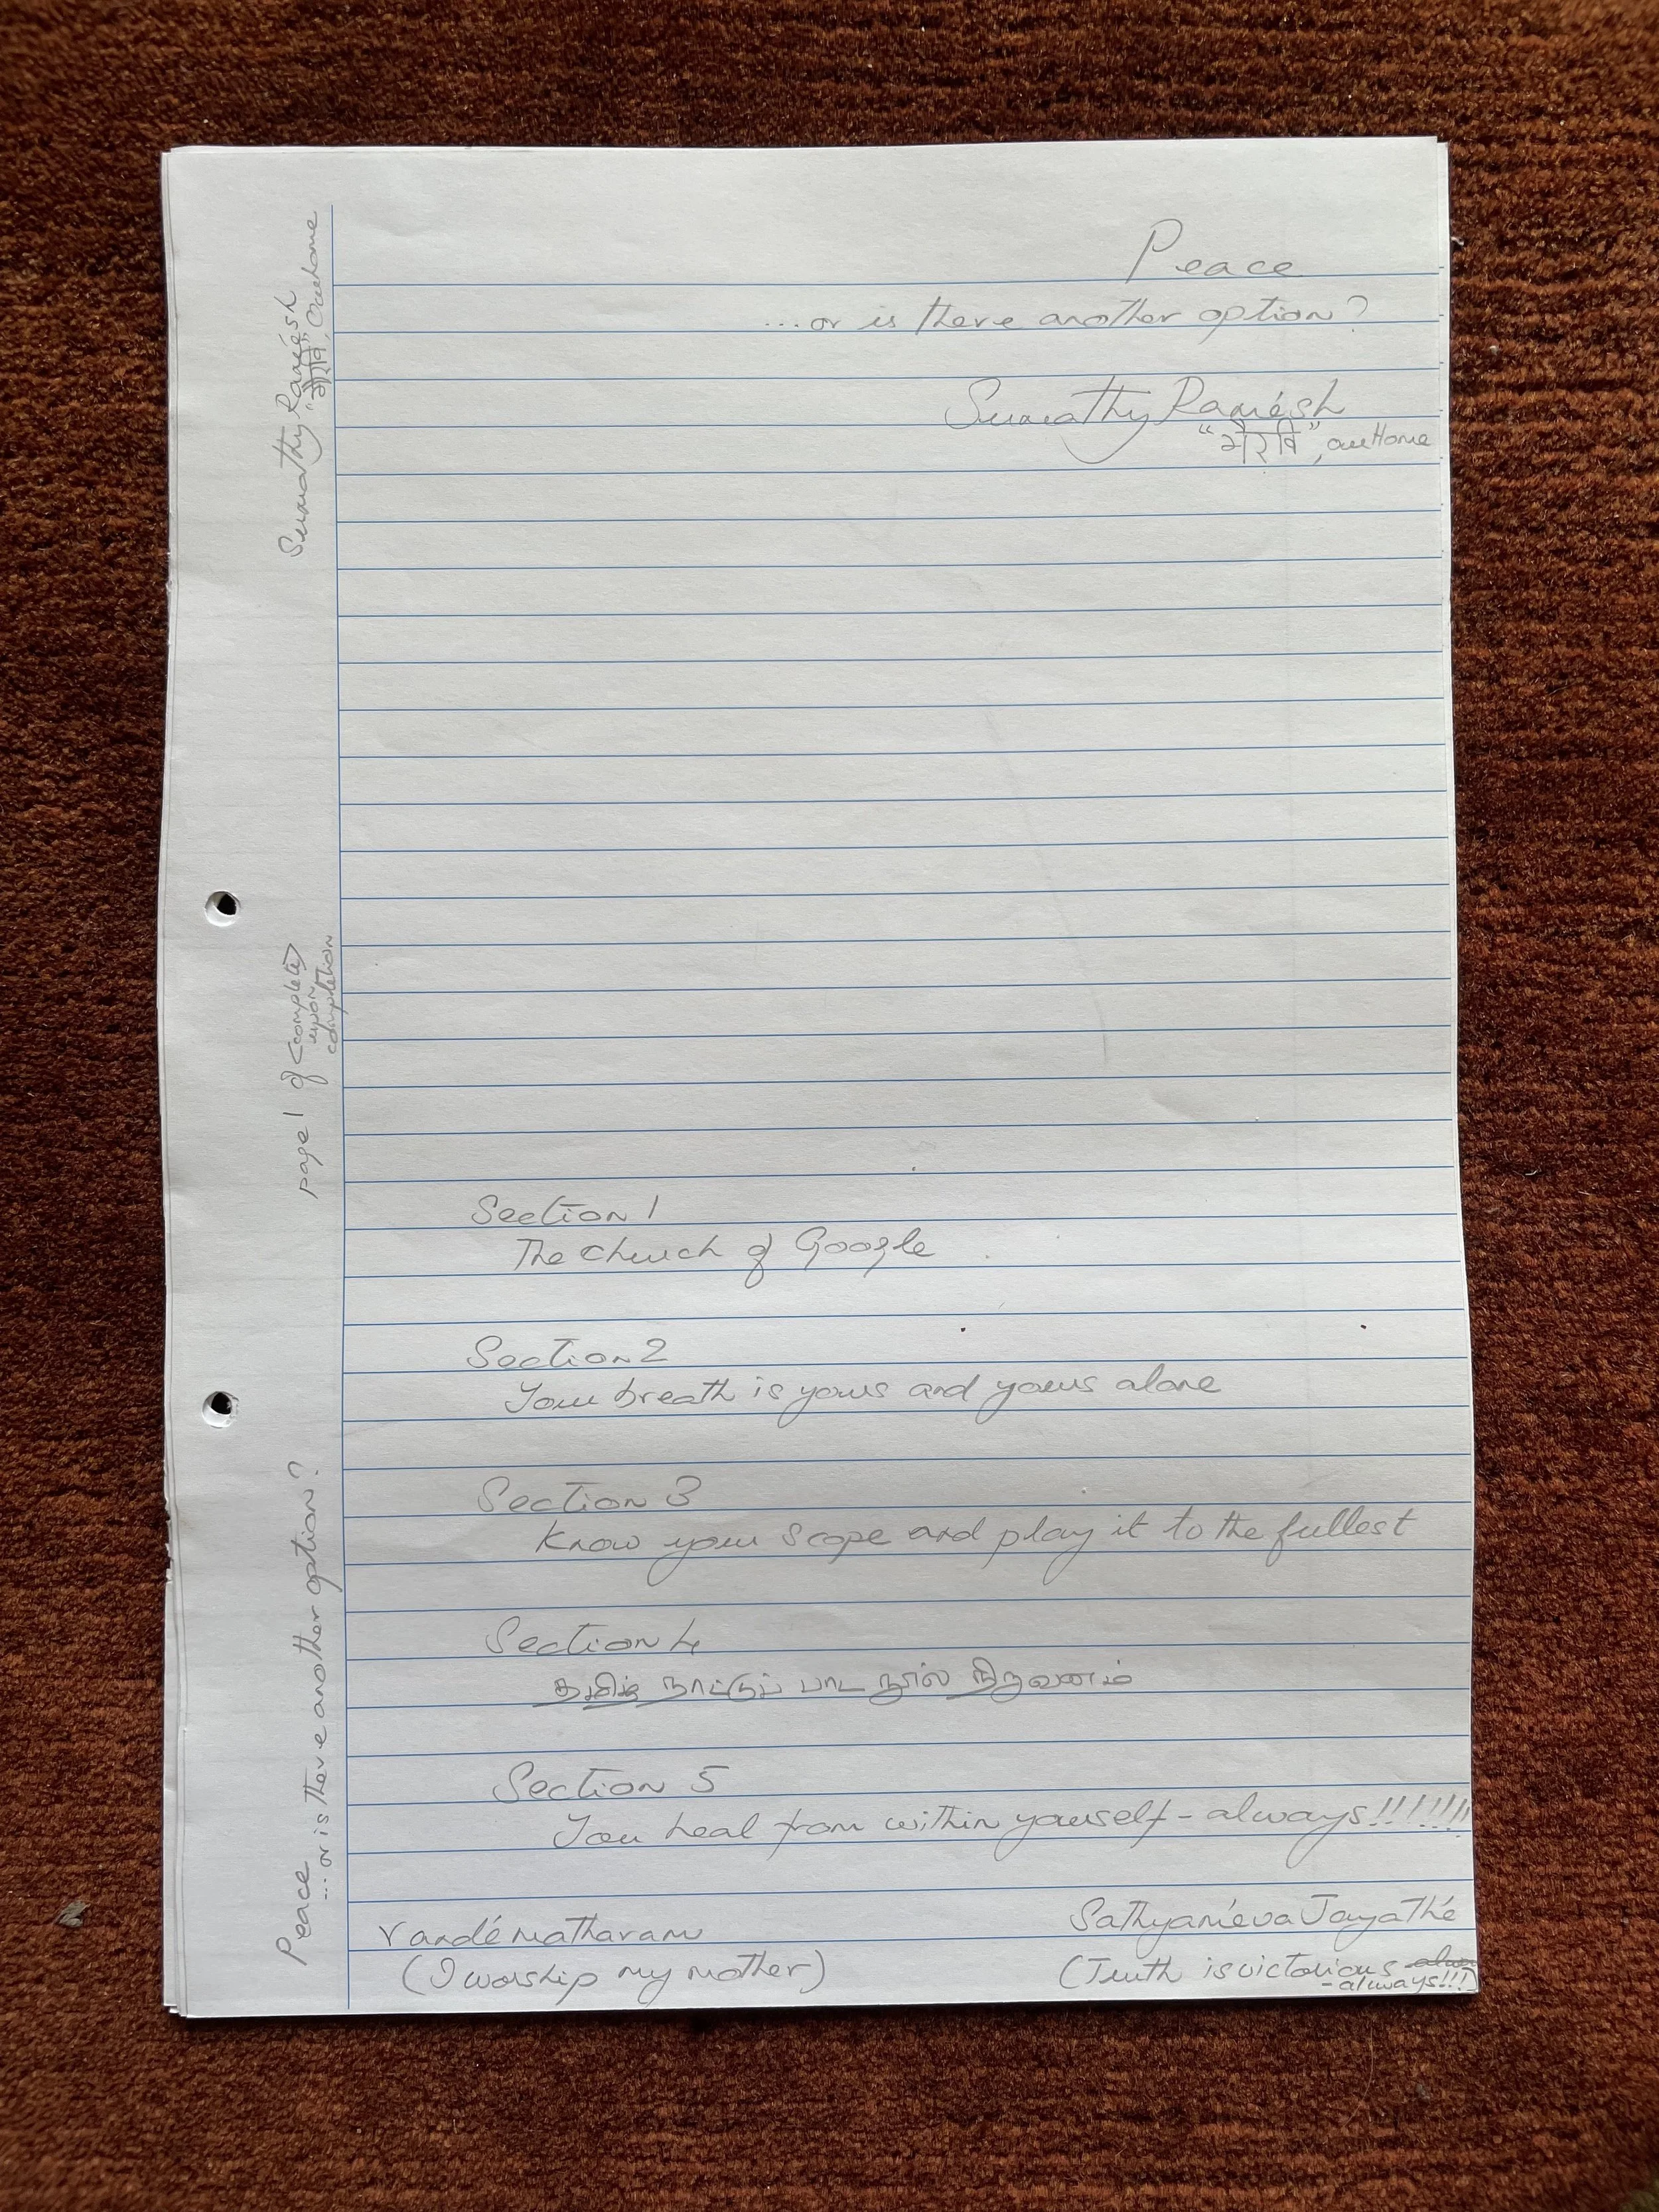 Peace
...or is there another option?
Sumathy Ramésh
"गौरवि", our Home
Section 1
The Church of Google
Section 2
Your breath is yours and yours alone
Section 3
Know your scope and play it to the fullest
Section 4
தமிழ் நாட்டுப் பாட நூல் நிறுவனம்
Section 5
You heal from within yourself - always!!!!!!!
Vandé matharam
(I worship my mother)
Sathyaméva Jayathé
(Truth is victorious
- always!!!)
Peace
...or is there another option?
page 1 of <complete>
upon
completion
Sumathy Ramésh
our home